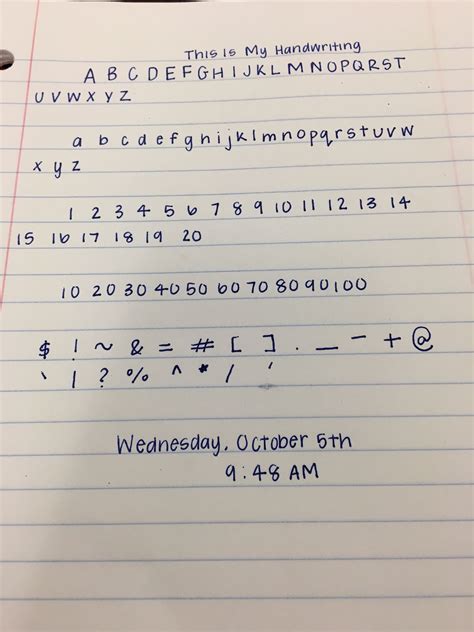 This Is My Handwriting
A B C D E F G H I J K L M N O P Q R S T
U V W X Y Z
a b c d e f g h i j k l m n o p q r s t u v w
x y z
1 2 3 4 5 6 7 8 9 10 11 12 13 14
15 16 17 18 19 20
10 20 30 40 50 60 70 80 90 100
$ ! ~ & = # [ ] . _ - + @
` | ? % ^ * / '
Wednesday, October 5th
9:48 AM